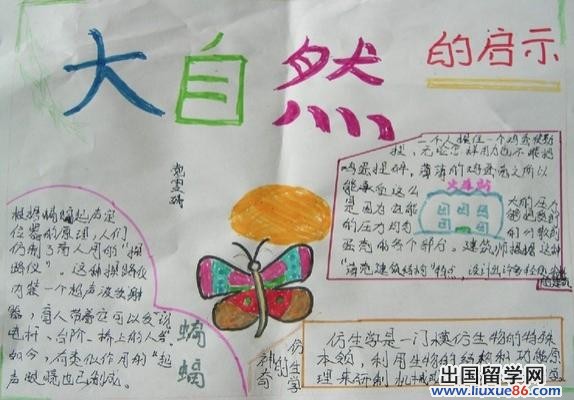 大自然
的启示
一个人握住一个鸡蛋使劲
捏,无论怎样用力也不能把
鸡蛋捏碎。薄薄的鸡蛋壳之所以
能承受这么
火车站
大的压力
是因为它能
的压力均匀
蛋壳的各个部分。建筑师根据这种
“薄壳建筑结构”特点,设计出许多
根据蝙蝠超声定
位器的原理,人们
仿制了盲人用的“探
路仪”。这种探路仪
内装一个超声波发射
器,盲人带着它可以发
电杆、台阶、桥上的人
如今,有类似作用的“超
声眼镜也已制成。
蝙
蝠
神奇的
仿生学
仿生学是一门模仿生物的特殊
本领,利用生物的结构和功能原
理来研制机械
出国留学网
www.liuxue86.com